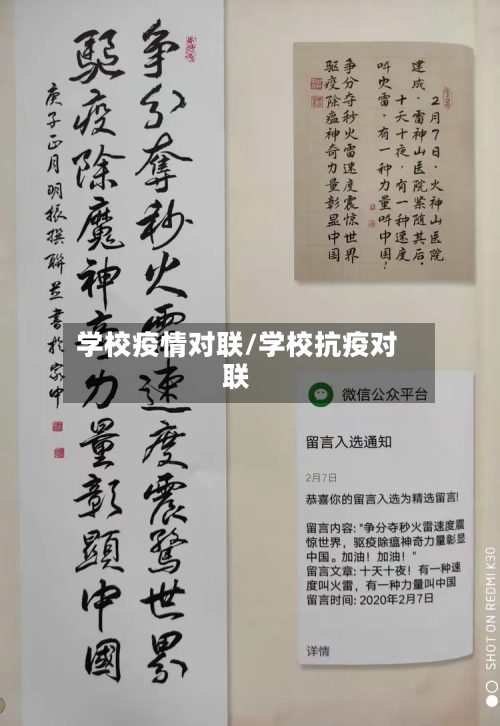 争分夺秒火雷速度震惊世界
驱疫除魔神奇力量彰显中国
庚子正月明振撰联并书于家中
2月7日,火神山医院
建成,雷神山医院紧随其后。
十天十夜,有一种速度
叫火雷,有一种力量叫中国!
争分夺秒火雷速度震惊世界
驱疫除瘟神奇力量彰显中国
学校疫情对联/学校抗疫对
联
微信公众平台
留言入选通知
2月7日
恭喜你的留言入选为精选留言!
留言内容: "争分夺秒火雷速度震
惊世界,驱疫除瘟神奇力量彰显
中国。加油!加油!"
留言文章: 十天十夜!有一种速
度叫火雷,有一种力量叫中国
留言时间: 2020年2月7日
详情
SHOT ON REDMI K30